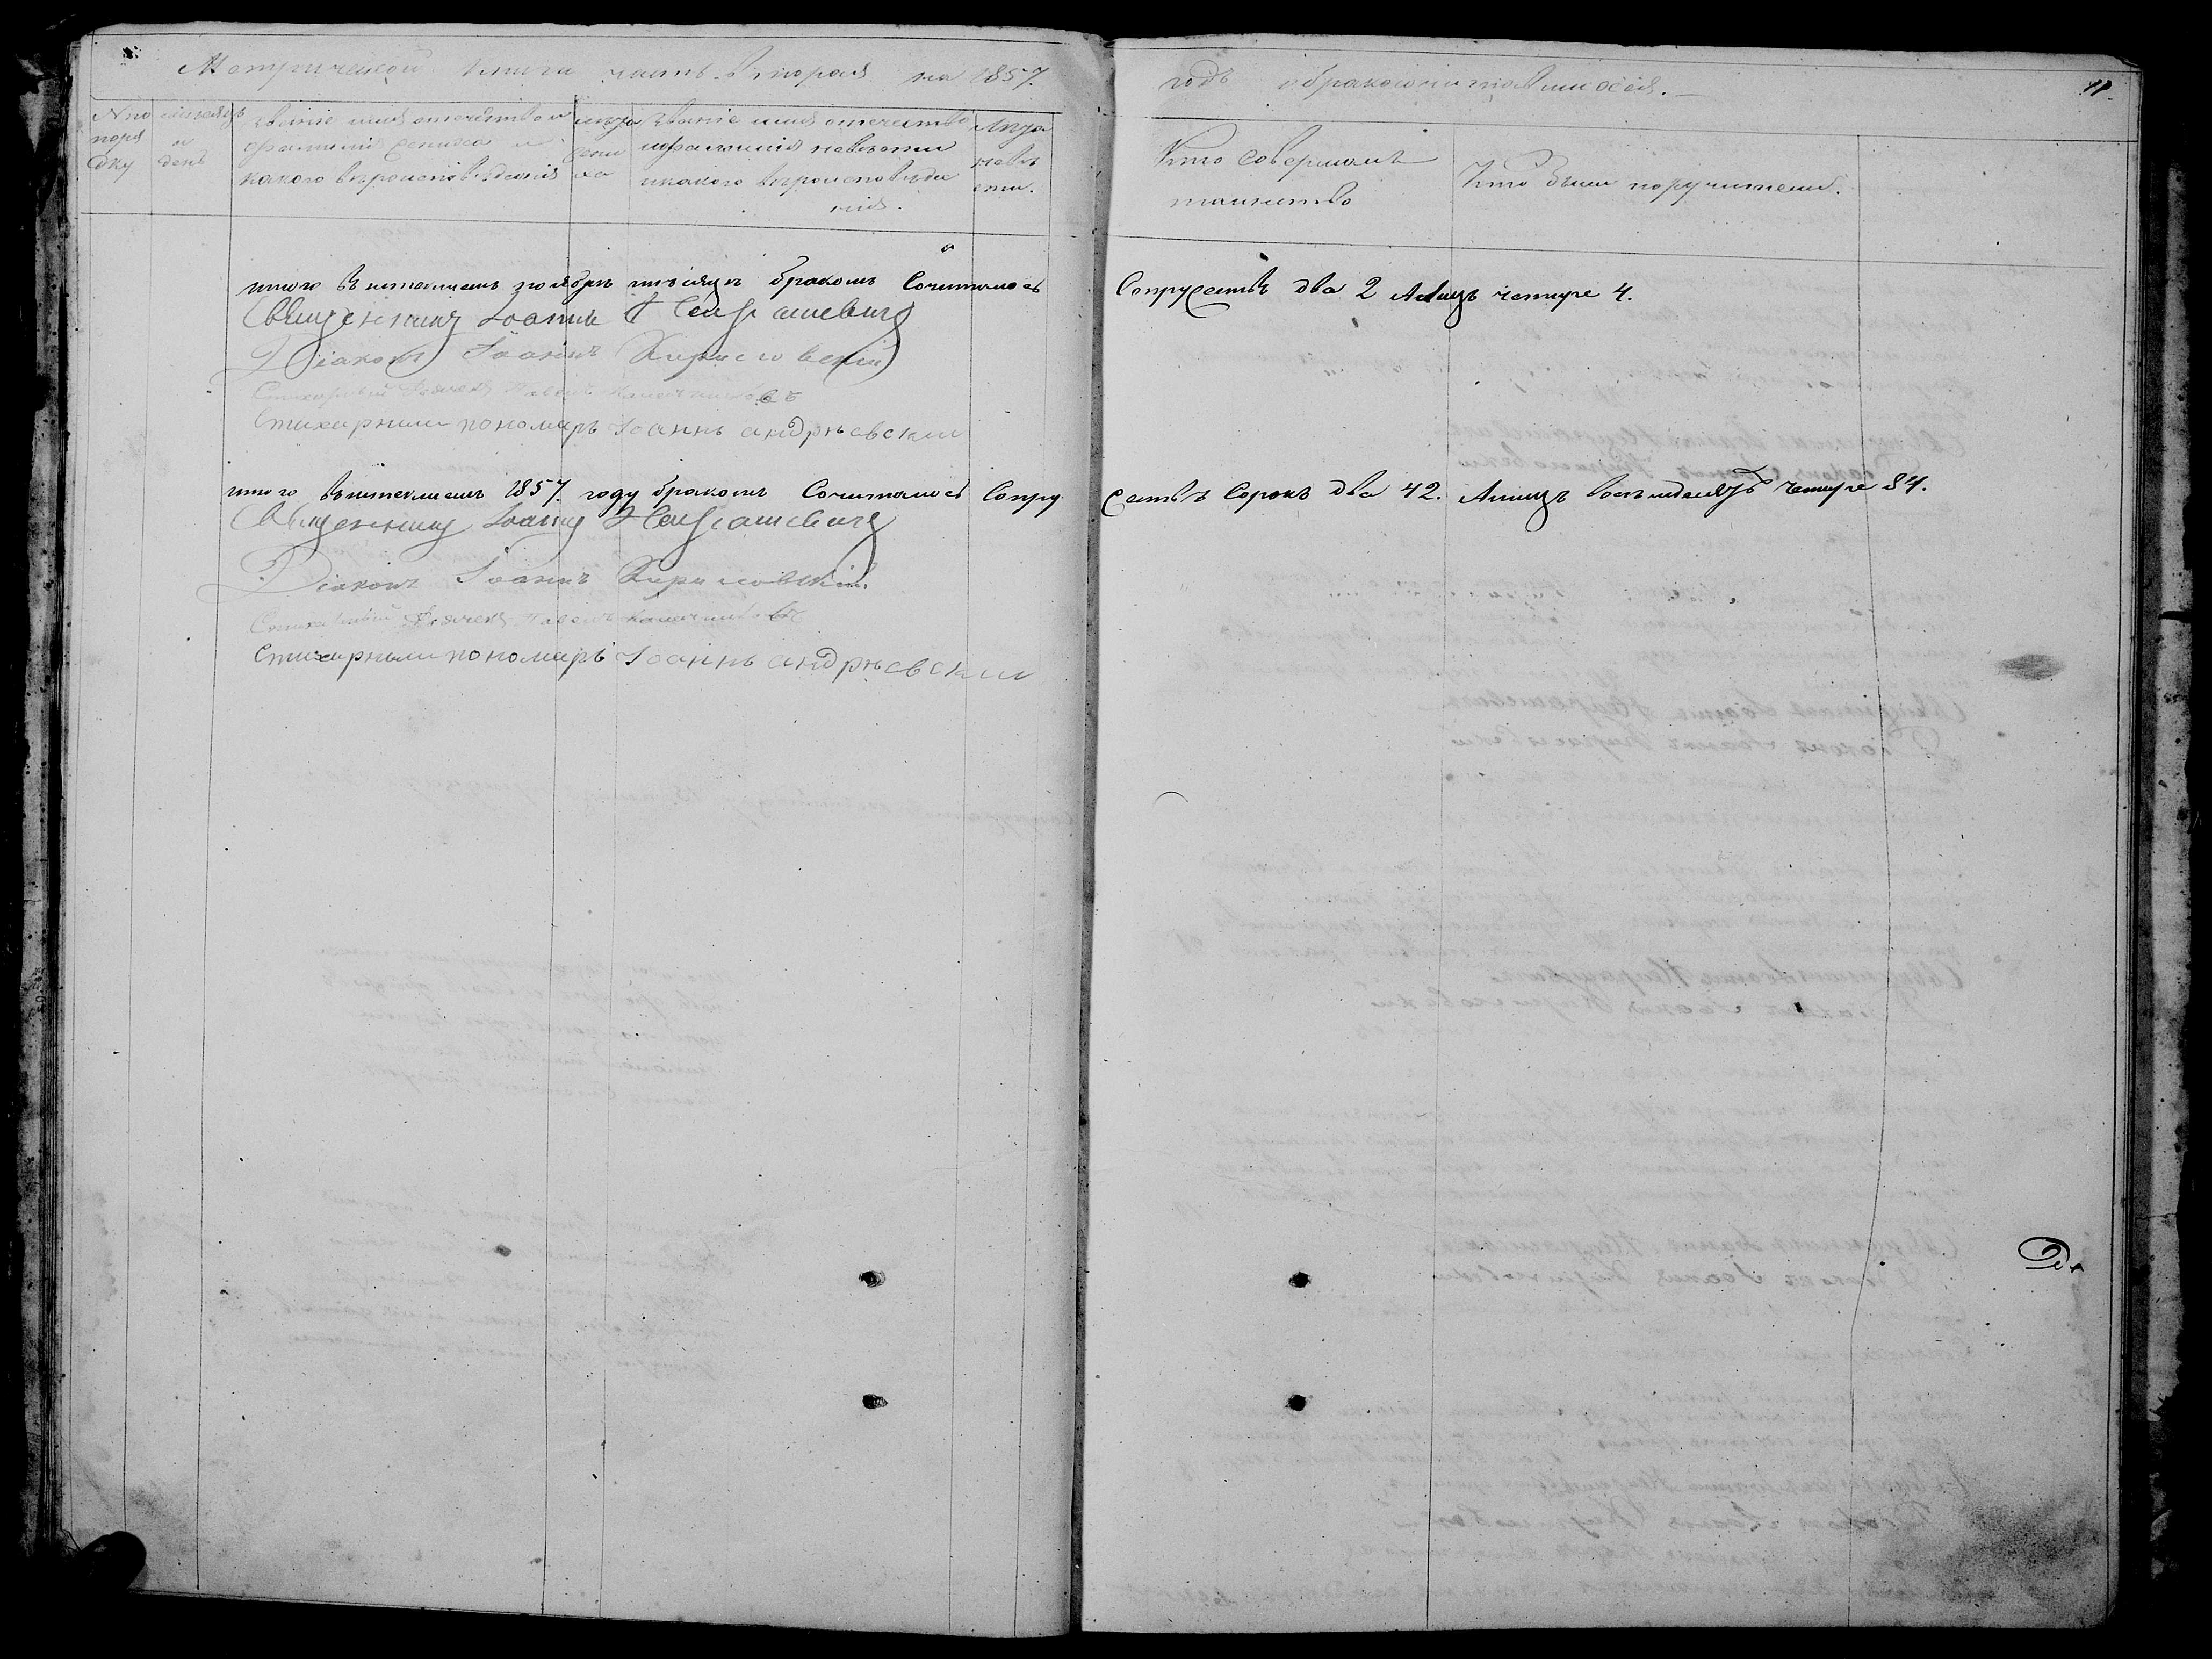 Метрической книги часть вторая на 1857. годъ о бракосочитавшихся.
11.
№ по поря дку
мѣсяцъ и день
званіе имя отечество и фамилия жениха и какого вѣроисповѣданія
лѣта жени ха
званіе имя отечество и фамилия невѣсты и какого вѣроисповѣда нія.
Лѣта невѣ сты.
Кто совершалъ таинство
Кто были поручители.
итого въ истекшемъ ноябрѣ мѣсяцѣ бракомъ Сочиталось Сопружествъ два 2 Лицъ четыре 4.
Священникъ Іоаннъ
Діаконъ Іоаннъ
Стихарный Дьячекъ Павелъ
Стихарный пономарь Іоаннъ андрѣевский
итого въ истекшемъ 1857. году бракомъ Сочиталось Сопру жествъ Сорокъ два 42. Лицъ восемдесятъ четыре 84.
Священникъ Іоаннъ
Діаконъ Іоаннъ
Стихарный Дьячекъ Павелъ
Стихарный пономарь Іоаннъ андрѣевский